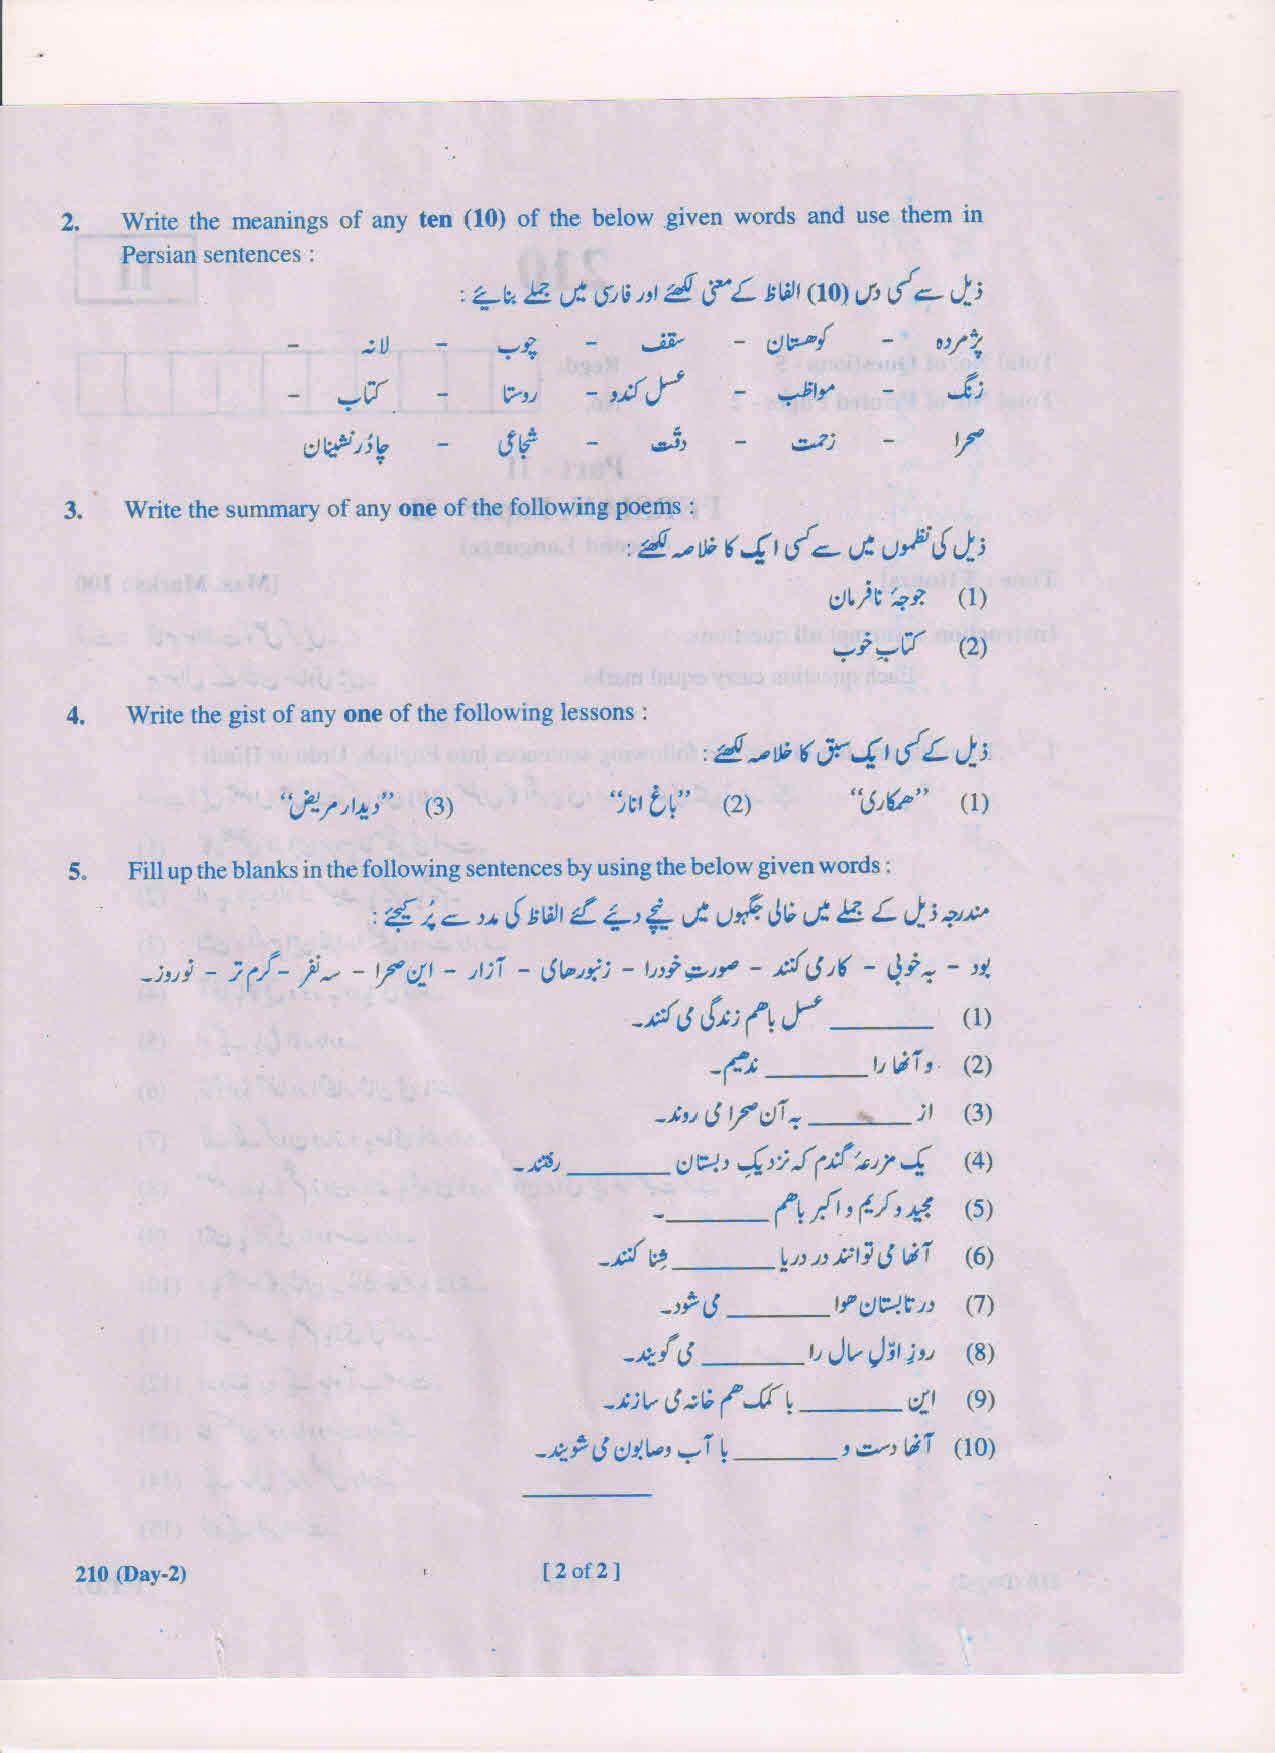 2. Write the meanings of any ten (10) of the below given words and use them in
Persian sentences :
ذیل سے کسی دس (10) الفاظ کے معنی لکھئے اور فارسی میں جملے بنائیے :
پژمردہ - کوھستان - سقف - چوب - لانہ -
زنگ - مواظب - عسل کندو - روستا - کتاب -
صحرا - زحمت - دقّت - شجاعی - چادُر نشینان
3. Write the summary of any one of the following poems :
ذیل کی نظموں میں سے کسی ایک کا خلاصہ لکھئے :
(1) جوجۂ نافرمان
(2) کتابِ خوب
4. Write the gist of any one of the following lessons :
ذیل کے کسی ایک سبق کا خلاصہ لکھئے :
(1) “ھمکاری” (2) “باغ انار” (3) “دیدار مریض”
5. Fill up the blanks in the following sentences by using the below given words :
مندرجہ ذیل کے جملے میں خالی جگہوں میں نیچے دیئے گئے الفاظ کی مدد سے پُر کیجئے :
بود - بہ خوبی - کار می کنند - صورتِ خودرا - زنبورھای - آزار - این صحرا - سہ نفر - گرم تر - نوروز۔
(1) ________ عسل باھم زندگی می کنند۔
(2) و آنھا را ________ ندھیم۔
(3) از ________ بہ آن صحرا می روند۔
(4) یک مزرعۂ گندم کہ نزدیکِ دبستان ________ رفتند۔
(5) مجید و کریم و اکبر باھم ________۔
(6) آنھا می توانند در دریا ________ شِنا کنند۔
(7) در تابستان ھوا ________ می شود۔
(8) روزِ اوّلِ سال را ________ می گویند۔
(9) این ________ با کمک ھم خانہ می سازند۔
(10) آنھا دست و ________ با آب و صابون می شویند۔
210 (Day-2) [ 2 of 2 ]